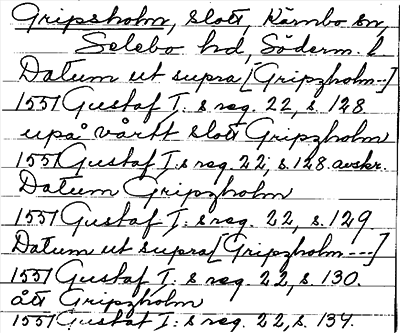 Gripsholm, slott, Kärnbo sn,
Selebo hd, Söderm. l.
Datum ut supra [Gripzholm--]
1551 Gustaf I:s reg. 22, s. 128
upå vårtt slott Gripzholm
1551 Gustaf I:s reg. 22, s. 128 avskr.
Datum Gripzholm
1551 Gustaf I:s reg. 22, s. 129.
Datum ut supra [Gripzholm---]
1551 Gustaf I:s reg. 22, s. 130.
att Gripzholm
1551 Gustaf I:s reg. 22, s. 134.